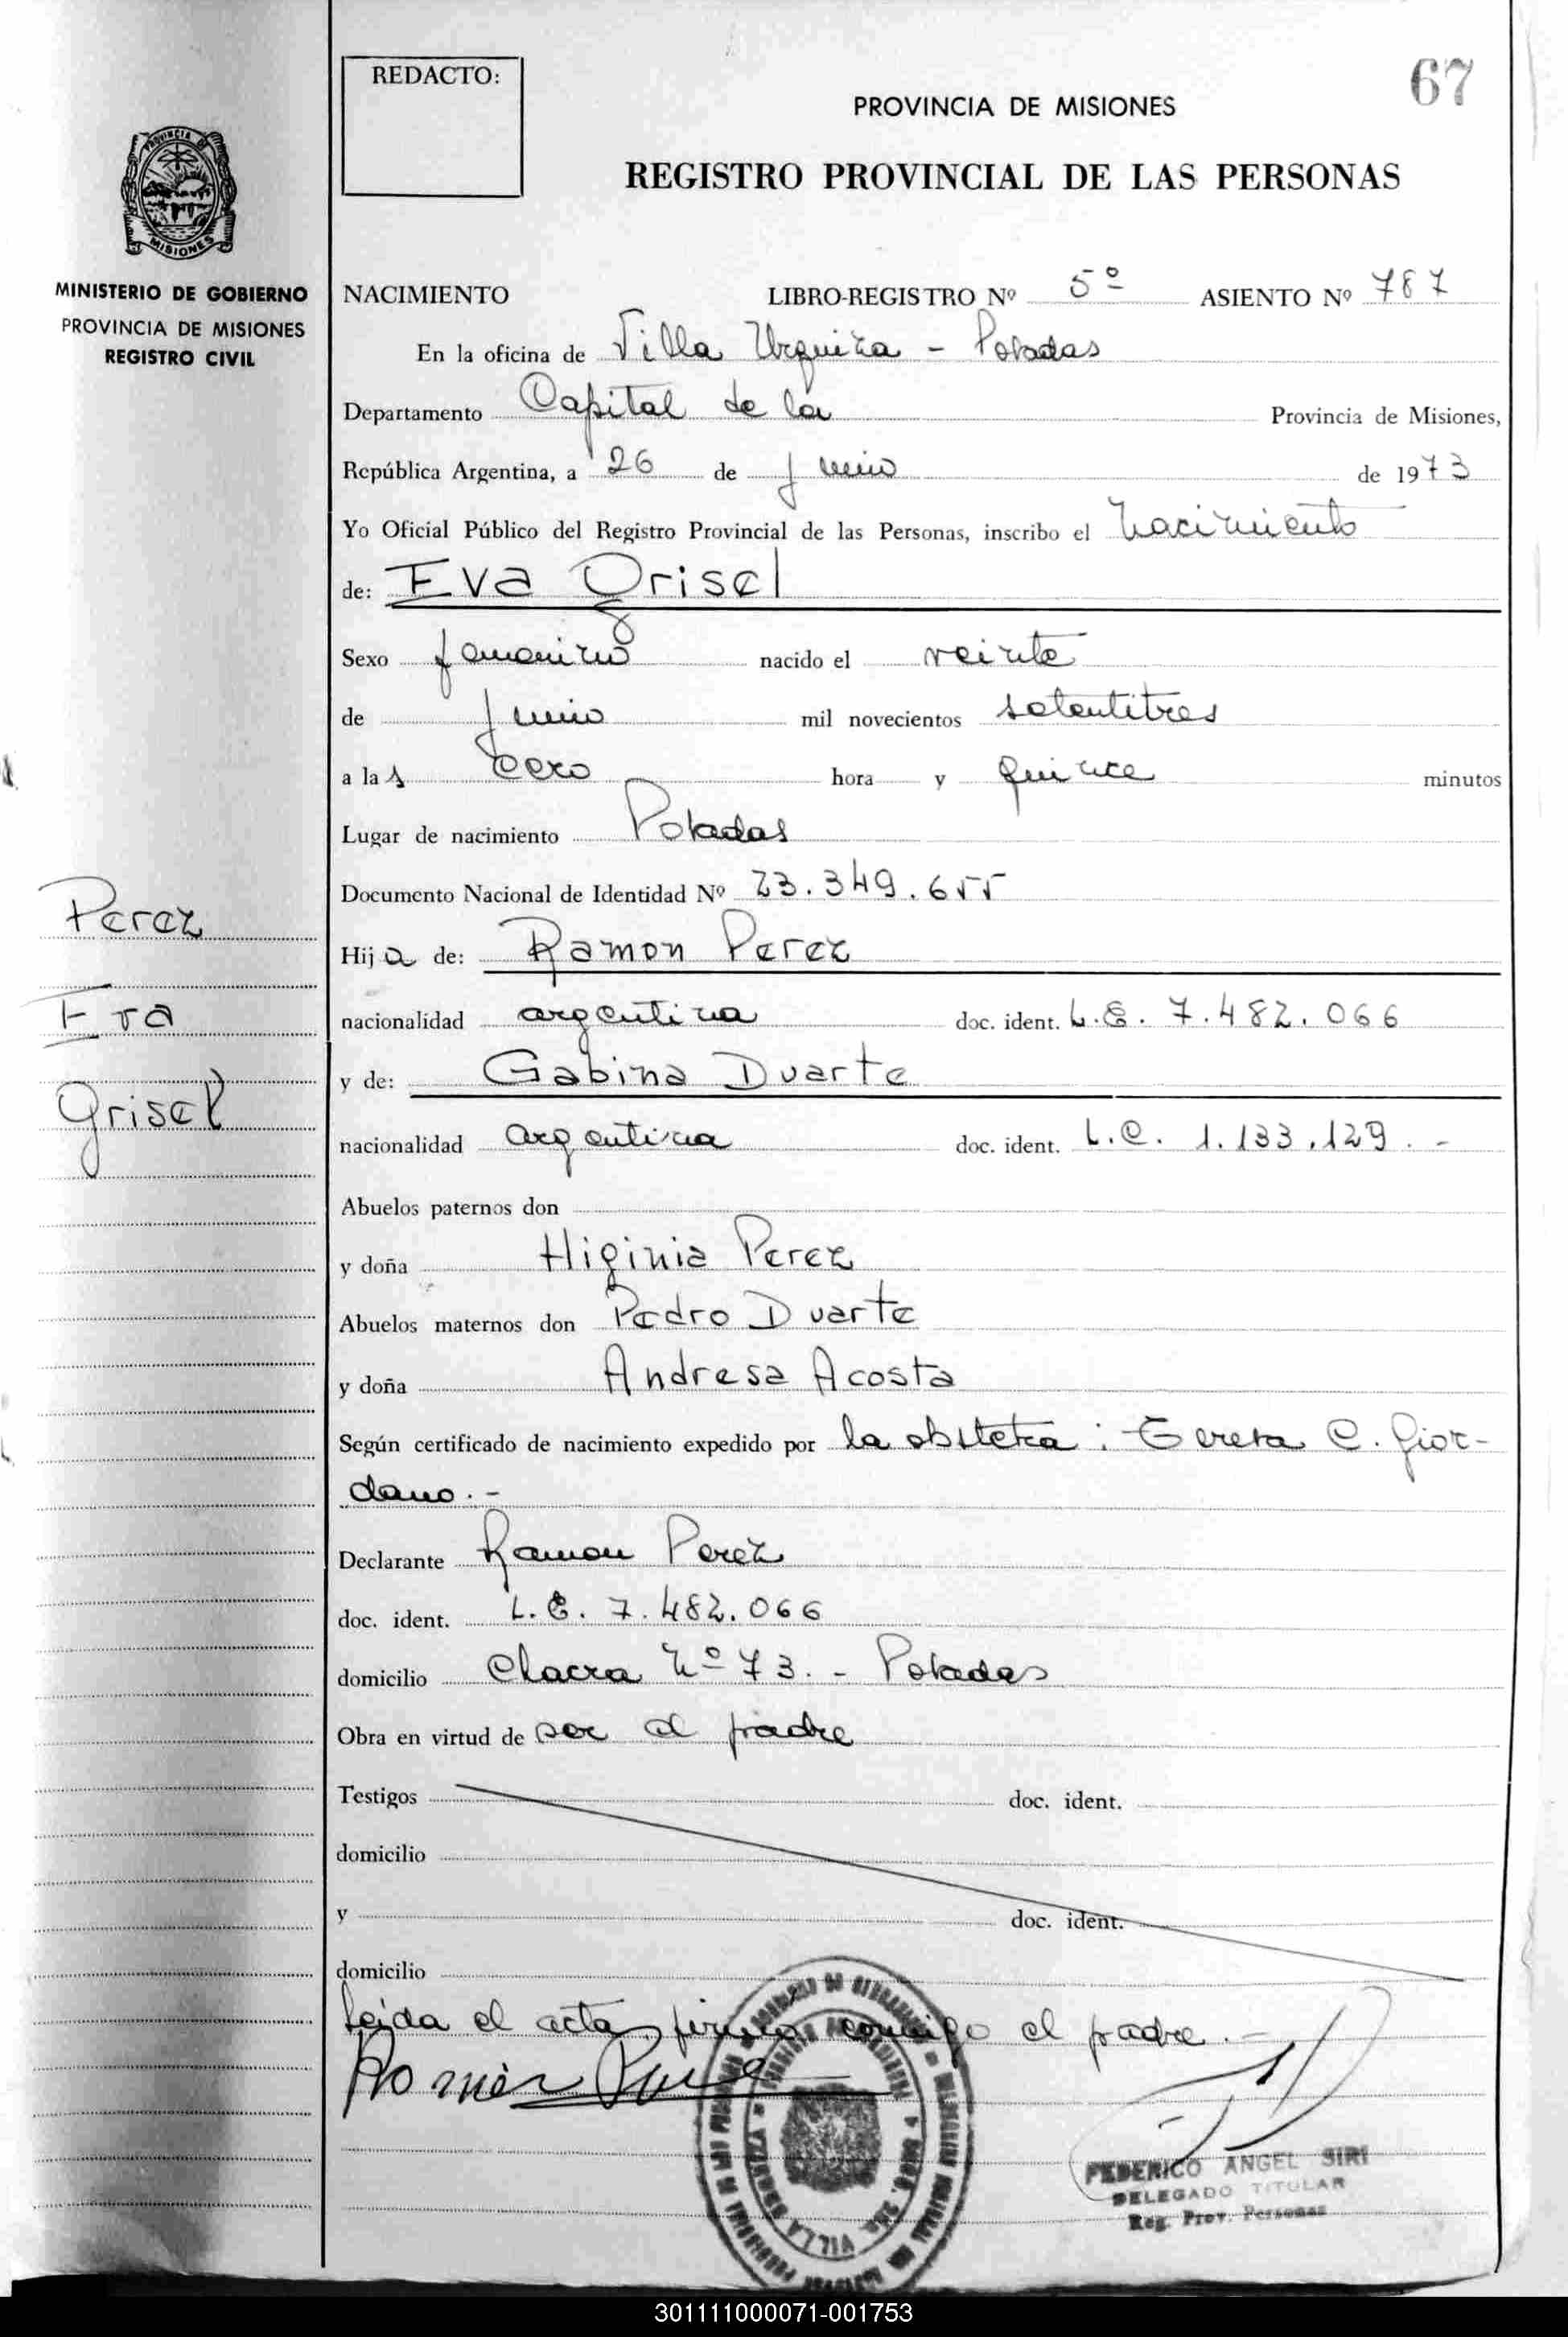 REDACTO:
67
PROVINCIA DE MISIONES
REGISTRO PROVINCIAL DE LAS PERSONAS
PROVINCIA DE
MISIONES
MINISTERIO DE GOBIERNO
PROVINCIA DE MISIONES
REGISTRO CIVIL
NACIMIENTO LIBRO-REGISTRO Nº 5º ASIENTO Nº 787
En la oficina de Villa Urquiza - Posadas
Departamento Capital de la Provincia de Misiones,
República Argentina, a 26 de Junio de 1973
Yo Oficial Público del Registro Provincial de las Personas, inscribo el Nacimiento
de: Eva Grisel
Sexo femenino nacido el veinte
de Junio mil novecientos setentitres
a las cero hora y quince minutos
Lugar de nacimiento Posadas
Documento Nacional de Identidad Nº 23.349.655
Hija de: Ramon Perez
nacionalidad argentina doc. ident. L.E. 7.482.066
y de: Gabina Duarte
nacionalidad argentina doc. ident. L.C. 1.133.129.-
Abuelos paternos don
y doña Higinia Perez
Abuelos maternos don Pedro Duarte
y doña Andresa Acosta
Según certificado de nacimiento expedido por la obstetra: Teresa C. Gior-
dano.-
Declarante Ramon Perez
doc. ident. L.E. 7.482.066
domicilio Chacra Nº 73.- Posadas
Obra en virtud de ser el padre
Testigos doc. ident.
domicilio
y doc. ident.
domicilio
Leida el acta, firma conmigo el padre.-
Perez
Eva
Grisel
FEDERICO ANGEL SIRI
DELEGADO TITULAR
Reg. Prov. Personas
VILLA URQUIZA
301111000071-001753